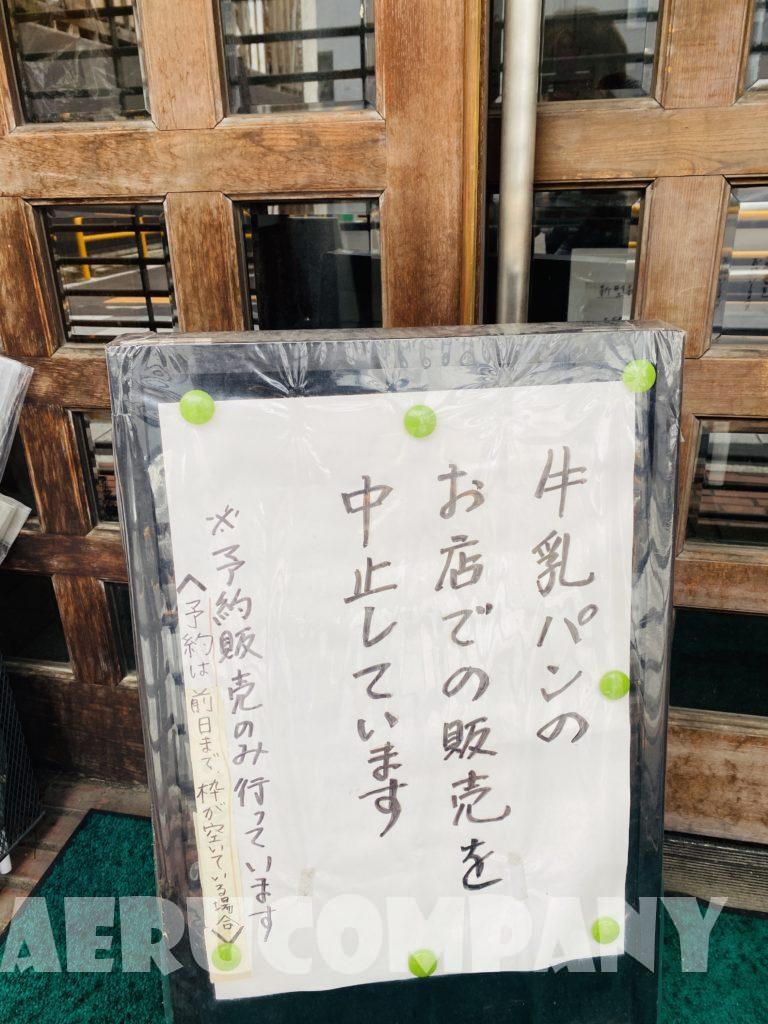 牛乳パンの
お店での販売を
中止しています
※予約販売のみ行っています
〈予約は前日まで、枠が空いている場合〉
AERUCOMPANY